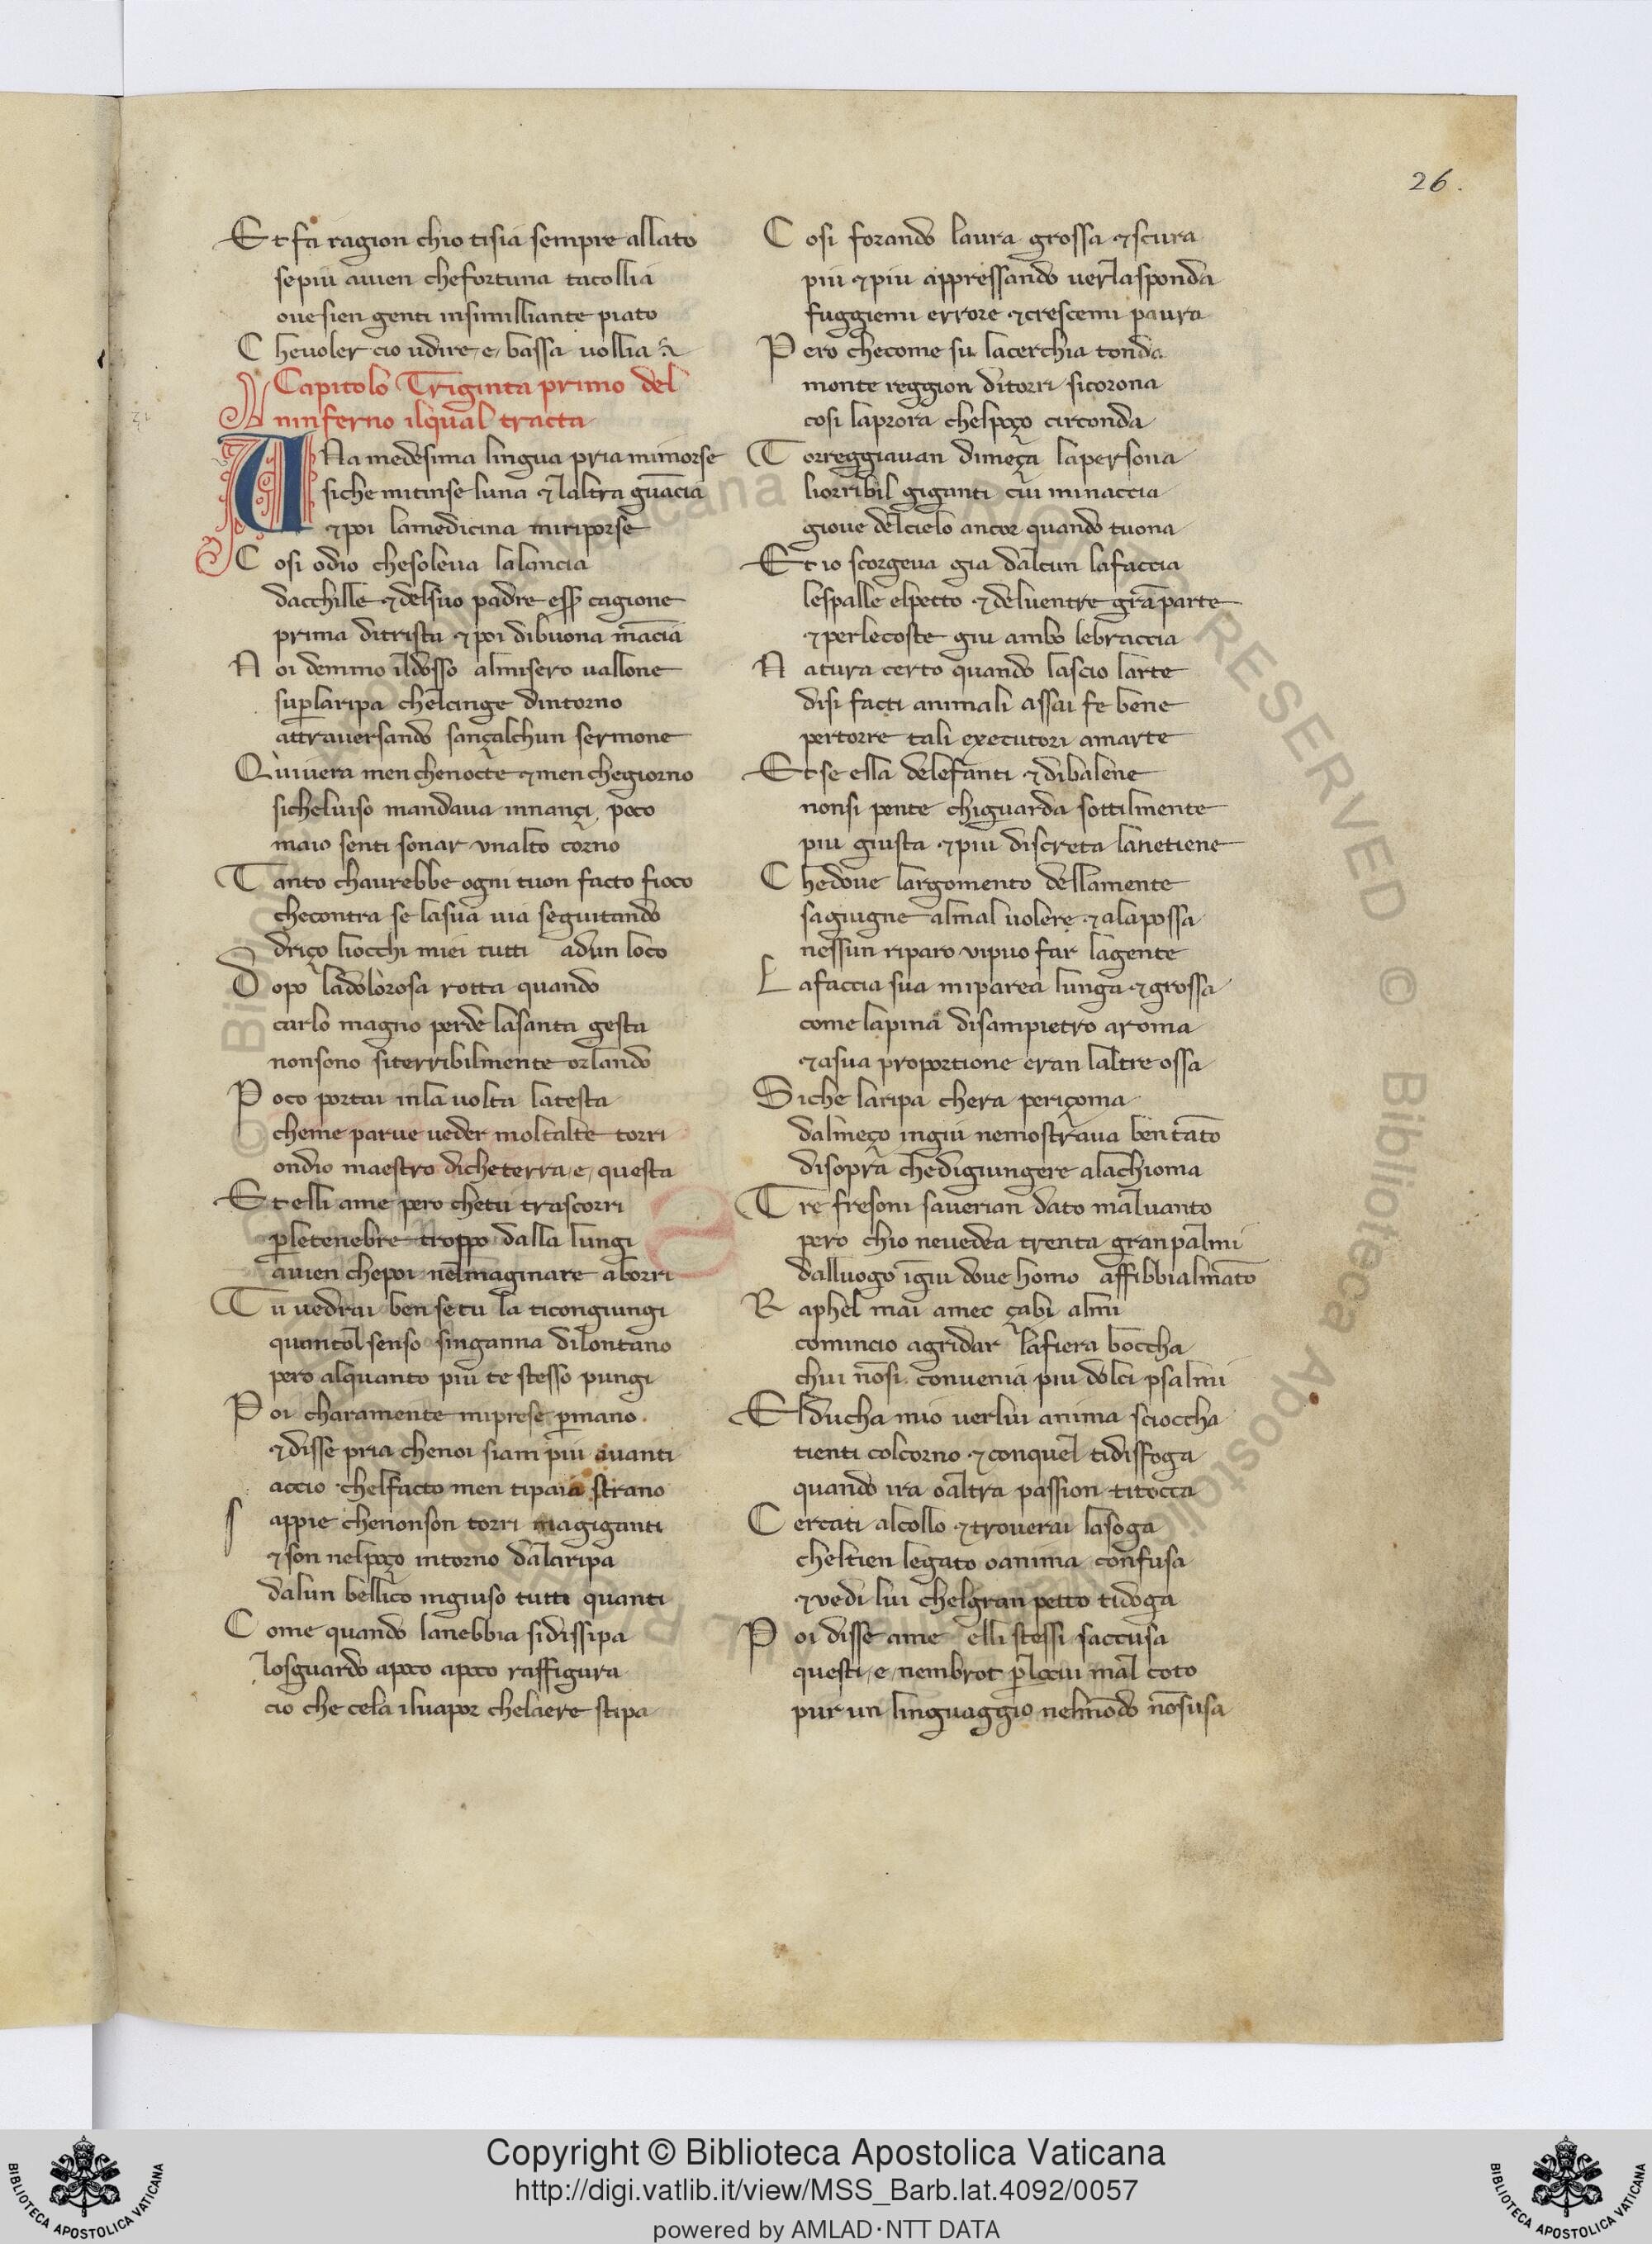 26.
Et fa ragion chio tisia sempre allato
sepiu auien chefortuna tacollia
ouesien genti insimilliante piato
C heuoler cio udire, e, bassa uollia
Capitolo Triginta primo del
ninferno ilqual tracta
UNa medesima lingua pria mimorse
siche mitinse luna ⁊ laltra guācia
⁊poi lamedicina miriporse
C osi odio chesoleua lalancia
dacchille ⁊delsuo padre esser cagione
prima ditrista ⁊poi dibuona mācia
N oi demmo ildosso almisero uallone
sup̱laripa chelcinge dintorno
attrauersando sançalchun sermone
Quiuiera men chenocte ⁊men chegiorno
sicheluiso mandaua innançi poco
maio senti sonar vnalto corno
T anto chaurebbe ogni tuon facto fioco
checontra se lasua uia seguitando
driço liocchi miei tutti adun loco
D opo ladolorosa rotta quando
carlo magno perde lasanta gesta
nonsono siterribilmente orlando
P oco portai inla uolta latesta
cheme parue ueder moltalte torri
ondio maestro dicheterra, e, questa
Et elli ame pero chetu trascorri
p̱letenebre troppo dalla lungi
auien chepoi nelmaginare aborri
T u uedrai ben setu la ticongiungi
quantol senso singanna dilontano
pero alquanto piu te stesso pungi
P oi charamente miprese p̱mano.
⁊disse pria chenoi siam piu auanti
accio chelfacto men tipaia strano
S appie chenonson torri magiganti
⁊son nelpoço intorno dalaripa
dalun bellico ingiuso tutti quanti
C ome quando lanebbia sidissipa
losguardo apoco apoco raffigura
cio che cela iluapor chelaere stipa
C osi forando laura grossa ⁊scura
piu ⁊piu appressando uerlasponda
fuggiemi errore ⁊crescemi paura
P ero checome su lacerchia tonda
monte reggion ditorri sicorona
cosi laprora chelpoço circonda
T orreggiauan dimeça lapersona
liorribil giganti cui minaccia
gioue delcielo ancor quando tuona
Et io scorgeua gia dalcun lafaccia
lespalle elpetto ⁊deluentre grāparte
⁊perlecoste giu ambo lebraccia
N atura certo quando lascio larte
disi facti animali assai fe bene
pertorre tali executori amarte
Et se ella delefanti ⁊dibalene
nonsi pente chiguarda sottilmente
piu giusta ⁊piu discreta lanetiene
C hedoue largomento dellamente
sagiugne almal uolere ⁊alapossa
nessun riparo vipuo far lagente
L afaccia sua miparea lunga ⁊grossa
come lapina disampietro aroma
⁊asua proportione eran laltre ossa
Siche laripa chera periçoma
dalmeço ingiu nemostraua ben tāto
disopra chedigiungere alachioma
T re fresoni sauerian dato maluanto
pero chio neuedea trenta granpalmi
dalluogo īgiu doue homo affibbialmāto
R aphel mai amec çabi almi
comincio agridar lafiera boccha
chui nōsi conuenia piu dolci psalmi
Elducha mio uerlui anima scioccha
tienti colcorno ⁊conquel tidisfoga
quando ira oaltra passion titocca
C ercati alcollo ⁊trouerai lasoga
cheltien legato oanima confusa
⁊vedi lui chelgran petto tidoga
P oi disse ame elli stessi saccusa
questi, e, nembrot p̱locui mal coto
pur un linguaggio nelmōdo nōsusa
Copyright © Biblioteca Apostolica Vaticana
http://digi.vatlib.it/view/MSS_Barb.lat.4092/0057
powered by AMLAD·NTT DATA
BIBLIOTECA APOSTOLICA VATICANA
BIBLIOTECA APOSTOLICA VATICANA